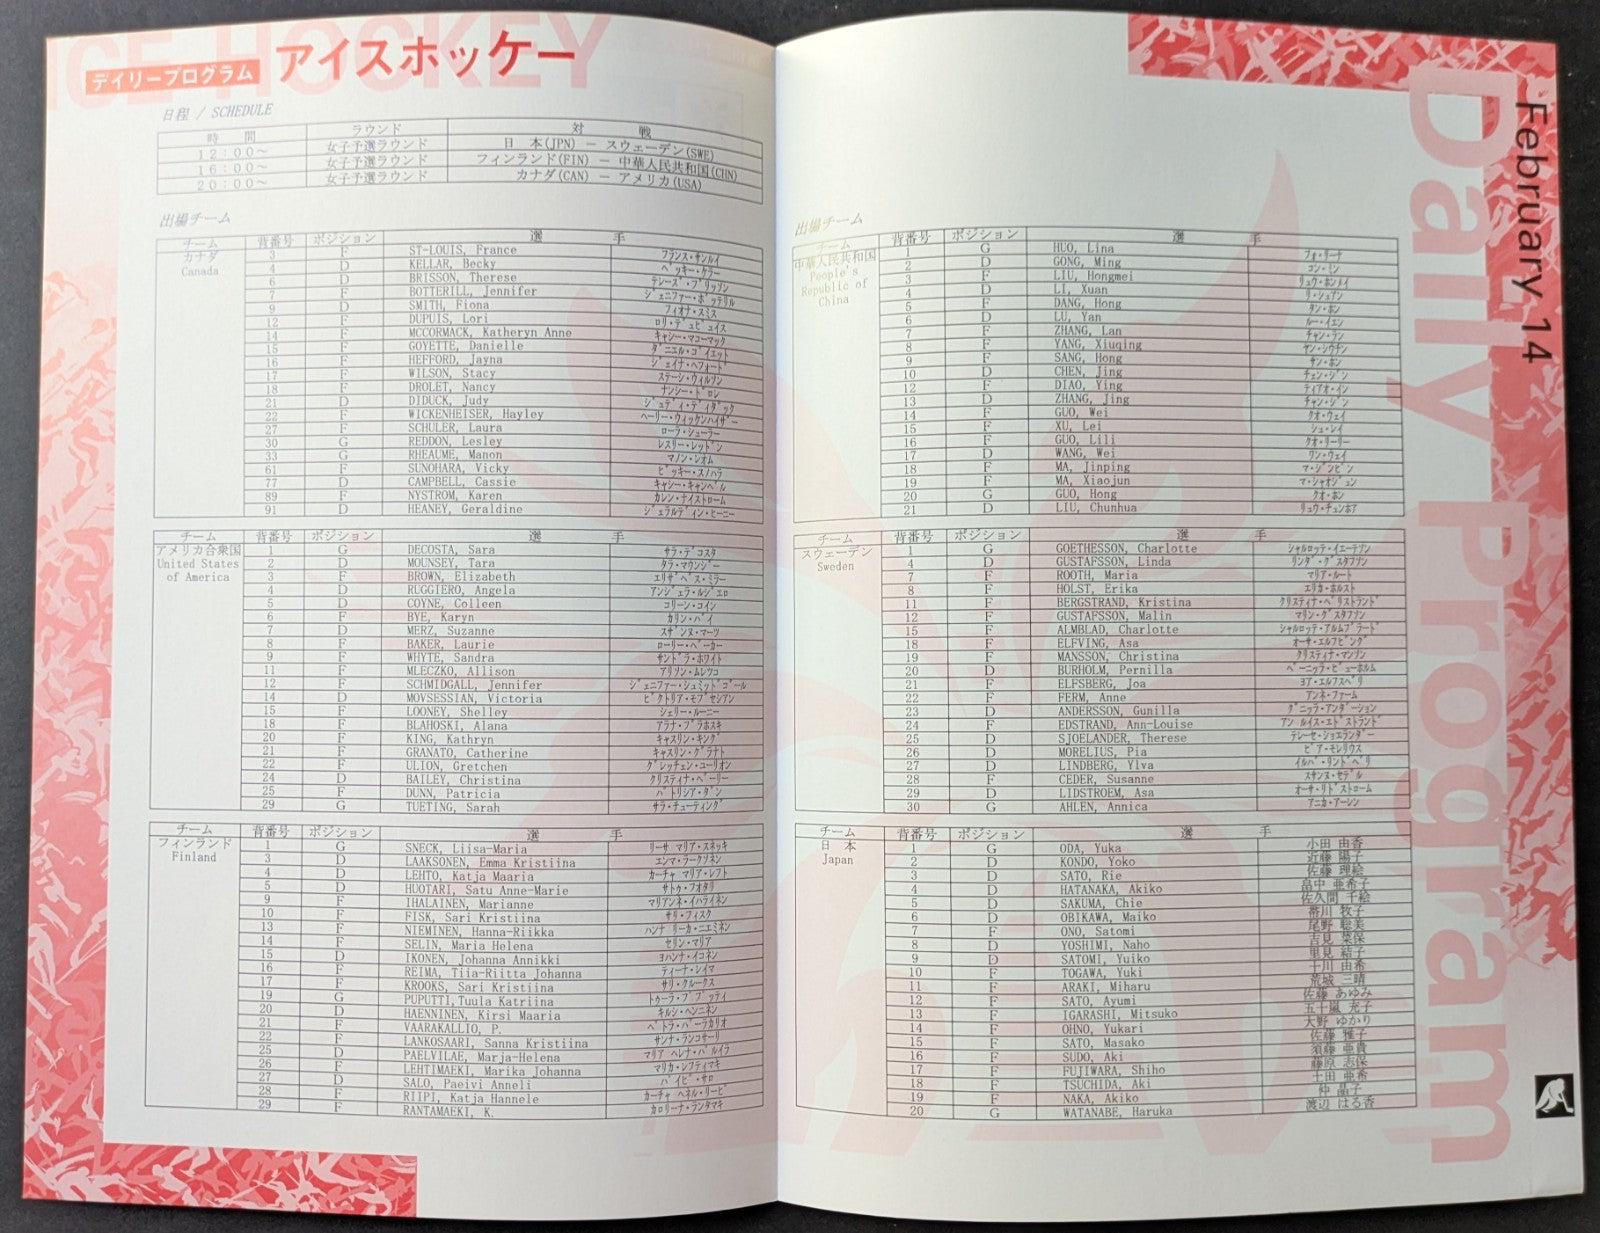 ICE HOCKEY
デイリープログラム アイスホッケー
日程 / SCHEDULE
時 間 ラウンド 対 戦
12:00～ 女子予選ラウンド 日 本(JPN) － スウェーデン(SWE)
16:00～ 女子予選ラウンド フィンランド(FIN) － 中華人民共和国(CHN)
20:00～ 女子予選ラウンド カナダ(CAN) － アメリカ(USA)
出場チーム
チーム 背番号 ポジション 選 手
カナダ
Canada
3 F ST-LOUIS, France フランス・サンルイ
4 D KELLAR, Becky ベッキー・ケラー
6 D BRISSON, Therese テレーズ・ブリッソン
7 F BOTTERILL, Jennifer ジェニファー・ボッテリル
9 D SMITH, Fiona フィオナ・スミス
12 F DUPUIS, Lori ロリ・デュピュイス
14 F MCCORMACK, Katheryn Anne キャシー・マコーマック
15 F GOYETTE, Danielle ダニエル・ゴイエット
16 F HEFFORD, Jayna ジェイナ・ヘフォード
17 F WILSON, Stacy ステーシ・ウィルソン
18 F DROLET, Nancy ナンシー・ドロレ
21 D DIDUCK, Judy ジュディ・ディダック
22 F WICKENHEISER, Hayley ヘーリー・ウィッケンハイザー
27 F SCHULER, Laura ローラ・シューラー
30 G REDDON, Lesley レスリー・レッドン
33 G RHEAUME, Manon マノン・レオム
61 F SUNOHARA, Vicky ビッキー・スノハラ
77 D CAMPBELL, Cassie キャシー・キャンベル
89 F NYSTROM, Karen カレン・ナイストローム
91 D HEANEY, Geraldine ジェラルディン・ヒーニー
チーム 背番号 ポジション 選 手
アメリカ合衆国
United States
of America
1 G DECOSTA, Sara サラ・デコスタ
2 D MOUNSEY, Tara タラ・マウンジー
3 F BROWN, Elizabeth エリザベス・ミラー
4 D RUGGIERO, Angela アンジェラ・ルジエロ
5 D COYNE, Colleen コリーン・コイン
6 F BYE, Karyn カリン・バイ
7 D MERZ, Suzanne スザンヌ・マーツ
8 F BAKER, Laurie ローリー・ベーカー
9 F WHYTE, Sandra サンドラ・ホワイト
11 F MLECZKO, Allison アリソン・ムレツコ
12 F SCHMIDGALL, Jennifer ジェニファー・シュミットゴール
14 D MOVSESSIAN, Victoria ビクトリア・モブセシアン
15 F LOONEY, Shelley シェリー・ルーニー
18 F BLAHOSKI, Alana アラナ・ブラホスキ
20 F KING, Kathryn キャスリン・キング
21 F GRANATO, Catherine キャスリン・グラナト
22 F ULION, Gretchen グレッチェン・ユーリオン
24 D BAILEY, Christina クリスティナ・ベーリー
25 F DUNN, Patricia パトリシア・ダン
29 G TUETING, Sarah サラ・チューティング
チーム 背番号 ポジション 選 手
フィンランド
Finland
1 G SNECK, Liisa-Maria リーサ マリア・スネッキ
3 D LAAKSONEN, Emma Kristiina エンマ・ラークソネン
4 D LEHTO, Katja Maaria カーチャ マリア・レフト
5 D HUOTARI, Satu Anne-Marie サトゥ・フオタリ
9 F IHALAINEN, Marianne マリアンネ・イハライネン
10 F FISK, Sari Kristiina サリ・フィスク
13 F NIEMINEN, Hanna-Riikka ハンナ リーカ・ニエミネン
14 F SELIN, Maria Helena セリン・マリア
15 D IKONEN, Johanna Annikki ヨハンナ・イコネン
16 F REIMA, Tiia-Riitta Johanna ティーナ・レイマ
17 F KROOKS, Sari Kristiina サリ・クルークス
19 G PUPUTTI,Tuula Katriina トゥーラ・ププッティ
20 D HAENNINEN, Kirsi Maaria キルシ・ヘンニネン
21 F VAARAKALLIO, P. ペトラ・バーラカリオ
22 F LANKOSAARI, Sanna Kristiina サンナ・ランコサーリ
25 D PAELVILAE, Marja-Helena マリア ヘレナ・パルイラ
26 F LEHTIMAEKI, Marika Johanna マリカ・レフティマキ
27 D SALO, Paeivi Anneli パイビ・サロ
28 F RIIPI, Katja Hannele カーチャ ヘネル・リーピ
29 F RANTAMAEKI, K. カロリーナ・ランタマキ
出場チーム
チーム 背番号 ポジション 選 手
中華人民共和国
People's
Republic of
China
1 G HUO, Lina フォ・リーナ
2 D GONG, Ming コン・ミン
3 F LIU, Hongmei リュウ・ホンメイ
4 D LI, Xuan リ・シュアン
5 F DANG, Hong タン・ホン
6 D LU, Yan ルー・イエン
7 F ZHANG, Lan チャン・ラン
8 F YANG, Xiuqing ヤン・シウチン
9 F SANG, Hong サン・ホン
10 D CHEN, Jing チェン・ジン
12 F DIAO, Ying ティアオ・イン
13 D ZHANG, Jing チャン・ジン
14 F GUO, Wei クオ・ウェイ
15 F XU, Lei シュ・レイ
16 F GUO, Lili クオ・リーリー
17 D WANG, Wei ワン・ウェイ
18 F MA, Jinping マ・ジンピン
19 F MA, Xiaojun マ・シャオジュン
20 G GUO, Hong クオ・ホン
21 D LIU, Chunhua リュウ・チュンホア
チーム 背番号 ポジション 選 手
スウェーデン
Sweden
1 G GOETHESSON, Charlotte シャルロッテ・イエーテソン
4 D GUSTAFSSON, Linda リンダ・グスタフソン
7 F ROOTH, Maria マリア・ルート
8 F HOLST, Erika エリカ・ホルスト
11 F BERGSTRAND, Kristina クリスティナ・ベリストランド
12 F GUSTAFSSON, Malin マリン・グスタフソン
15 F ALMBLAD, Charlotte シャルロッテ・アルムブラード
18 F ELFVING, Asa オーサ・エルフビング
19 F MANSSON, Christina クリスティナ・マンソン
20 D BURHOLM, Pernilla ペーニッラ・ビューホルム
21 F ELFSBERG, Joa ヨア・エルフスベリ
22 F FERM, Anne アンネ・ファーム
23 D ANDERSSON, Gunilla グニッラ・アンダーション
24 F EDSTRAND, Ann-Louise アン ルイス・エドストランド
25 D SJOELANDER, Therese テレーセ・ショエランダー
26 D MORELIUS, Pia ピア・モレリウス
27 D LINDBERG, Ylva イルバ・リンドベリ
28 F CEDER, Susanne スサンヌ・セデル
29 D LIDSTROEM, Asa オーサ・リドストローム
30 G AHLEN, Annica アニカ・アーレン
チーム 背番号 ポジション 選 手
日 本
Japan
1 G ODA, Yuka 小田 由香
2 D KONDO, Yoko 近藤 陽子
3 D SATO, Rie 佐藤 理絵
4 D HATANAKA, Akiko 畠中 亜希子
5 D SAKUMA, Chie 佐久間 千絵
6 D OBIKAWA, Maiko 帯川 牧子
7 F ONO, Satomi 尾野 聡美
8 D YOSHIMI, Naho 吉見 菜保
9 D SATOMI, Yuiko 里見 結子
10 F TOGAWA, Yuki 十川 由希
11 F ARAKI, Miharu 荒城 三晴
12 F SATO, Ayumi 佐藤 あゆみ
13 F IGARASHI, Mitsuko 五十嵐 充子
14 F OHNO, Yukari 大野 ゆかり
15 F SATO, Masako 佐藤 雅子
16 F SUDO, Aki 須藤 亜貴
17 F FUJIWARA, Shiho 藤原 志保
18 F TSUCHIDA, Aki 土田 亜希
19 F NAKA, Akiko 仲 晶子
20 G WATANABE, Haruka 渡辺 はる香
February 14
Daily Program